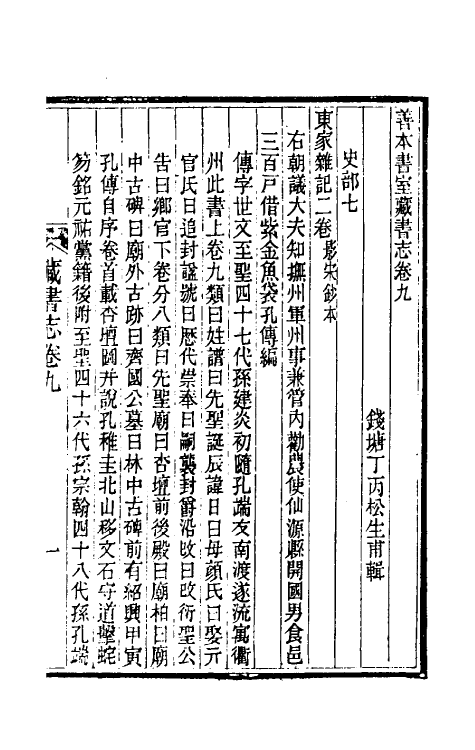 善本書室藏書志卷九
錢塘丁丙松生甫輯
史部七
東家雜記二卷影宋鈔本
右朝議大夫知撫州軍州事兼管內勸農使仙源縣開國男食邑
三百戶借紫金魚袋孔傳編
傳字世文至聖四十七代孫建炎初隨孔端友南渡遂流寓衢
州此書上卷九類曰姓譜曰先聖誕辰諱日曰母顏氏曰娶亓
官氏曰追封諡號曰歷代崇奉曰嗣襲封爵沿改曰改衍聖公
告曰鄉官下卷分八類曰先聖廟曰杏壇前後殿曰廟柏曰廟
中古碑曰廟外古跡曰齊國公墓曰林中古碑前有紹興甲寅
孔傳自序卷首載杏壇圖并說孔稚圭北山移文石守道擊蛇
笏銘元祐黨籍後附至聖四十六代孫宗翰四十八代孫孔端
藏書志卷九
一